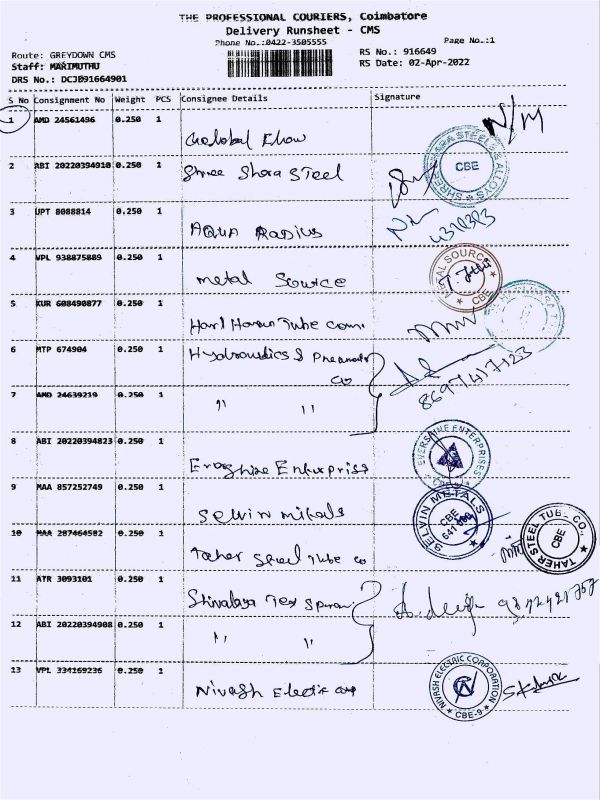 THE PROFESSIONAL COURIERS, Coimbatore
Delivery Runsheet - CMS
Phone No.:0422-3505555
Page No.:1
Route: GREYDOWN CMS
Staff: MARIMUTHU
DRS No.: DCJ091664901
RS No.: 916649
RS Date: 02-Apr-2022
S No Consignment No Weight PCS Consignee Details Signature
1 AMD 24561496 0.250 1 N/M
2 ABI 20220394910 0.250 1 Shree Shara Steel
CBE
3 UPT 8088814 0.250 1 AQUA Radius
4 VPL 938875889 0.250 1 Metal Source
METAL SOURCE
CBE
5 KUR 608490877 0.250 1 Hari Tube
6 MTP 674904 0.250 1 Hydraulics & Pneumatic
Co
8697417123
7 AMD 24639219 0.250 1 " "
8 ABI 20220394823 0.250 1 Evershine Enterprise
EVERSHINE ENTERPRISES
9 MAA 857252749 0.250 1 Selvin Mitals
SELVIN METALS
CBE
641
10 MAA 287464582 0.250 1 Taher Steel Tube Co
TAHER STEEL TUBE CO.,
CBE
11 ATR 3093101 0.250 1 Shivalaya Tex
9842421757
12 ABI 20220394908 0.250 1 " "
13 VPL 334169236 0.250 1 Nivash Electric Corp
NIVASH ELECTRIC CORPORATION
CBE-9